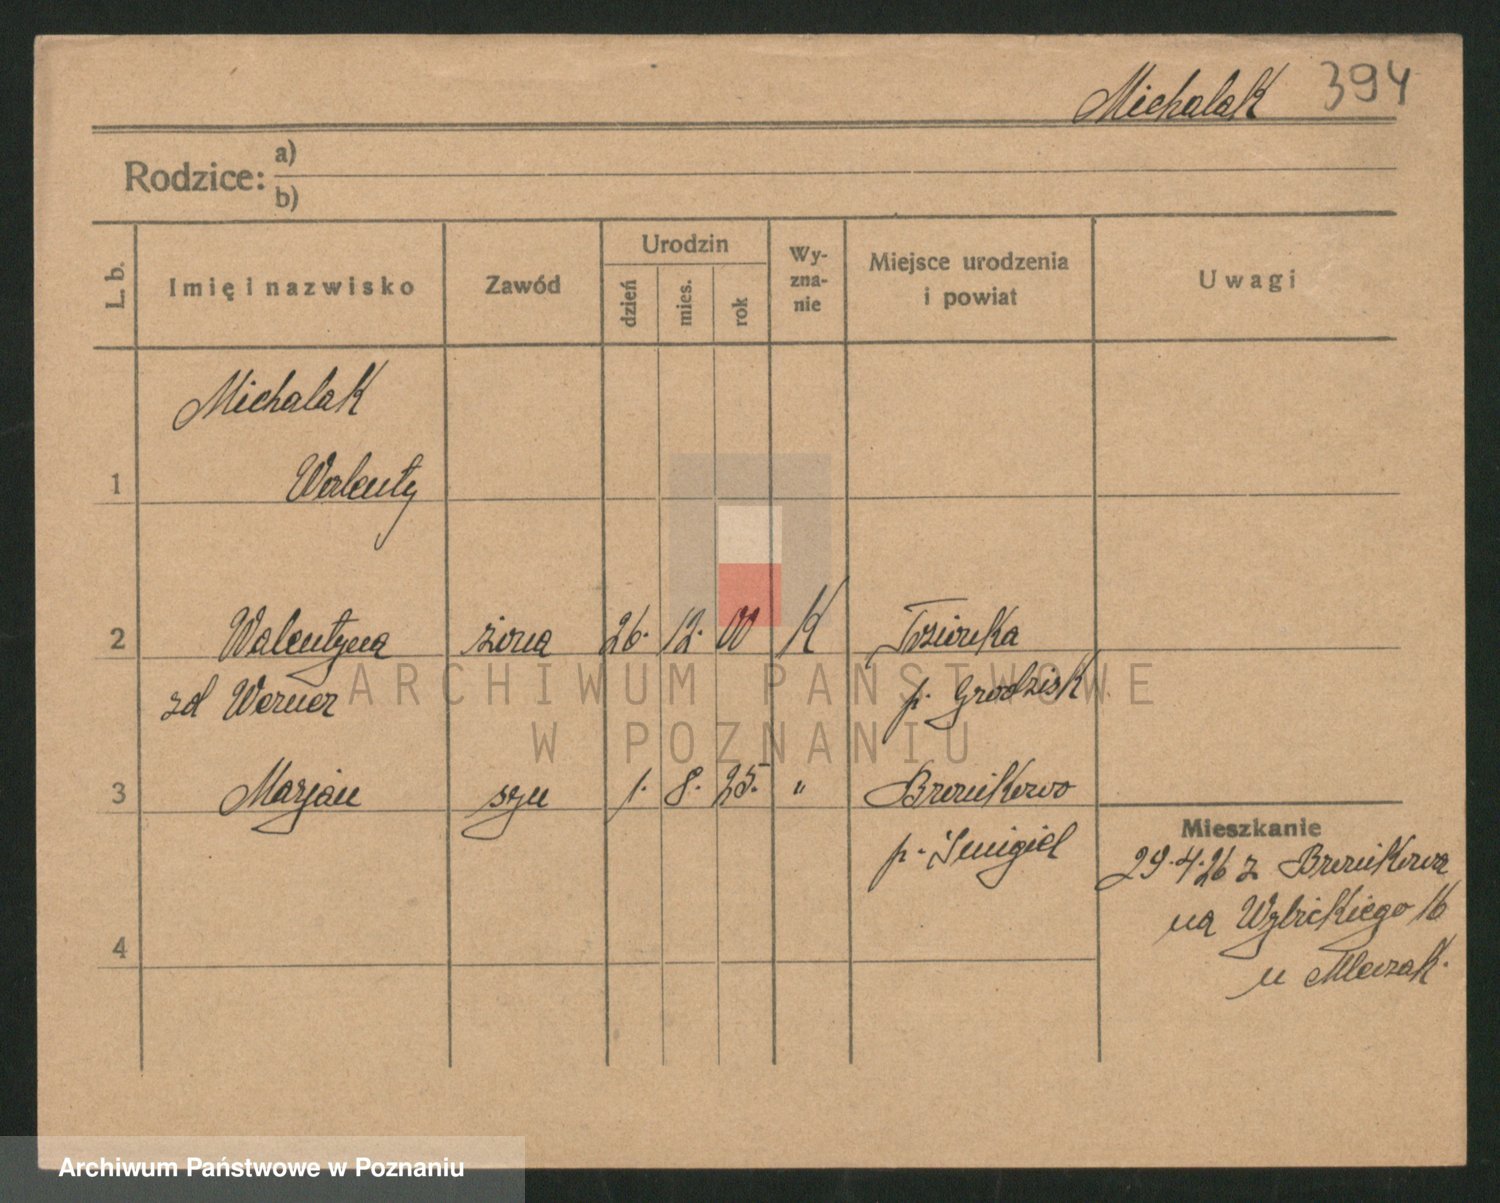 Michalak 394
Rodzice:
a)
b)
L. b.
Imię i nazwisko
Zawód
Urodzin
dzień
mies.
rok
Wy-
zna-
nie
Miejsce urodzenia
i powiat
Uwagi
Michalak
1 Walenty
2 Walentyna żona 26. 12. 00 K
zd Werner p. Grodzisk
3 Marjan syn 1. 8. 25. " Bronikowo
p. Śmigiel
Mieszkanie
29.4.26 z Bronikowa
na Wybickiego 16
u Mleczak.
4
ARCHIWUM PAŃSTWOWE
W POZNANIU
Archiwum Państwowe w Poznaniu